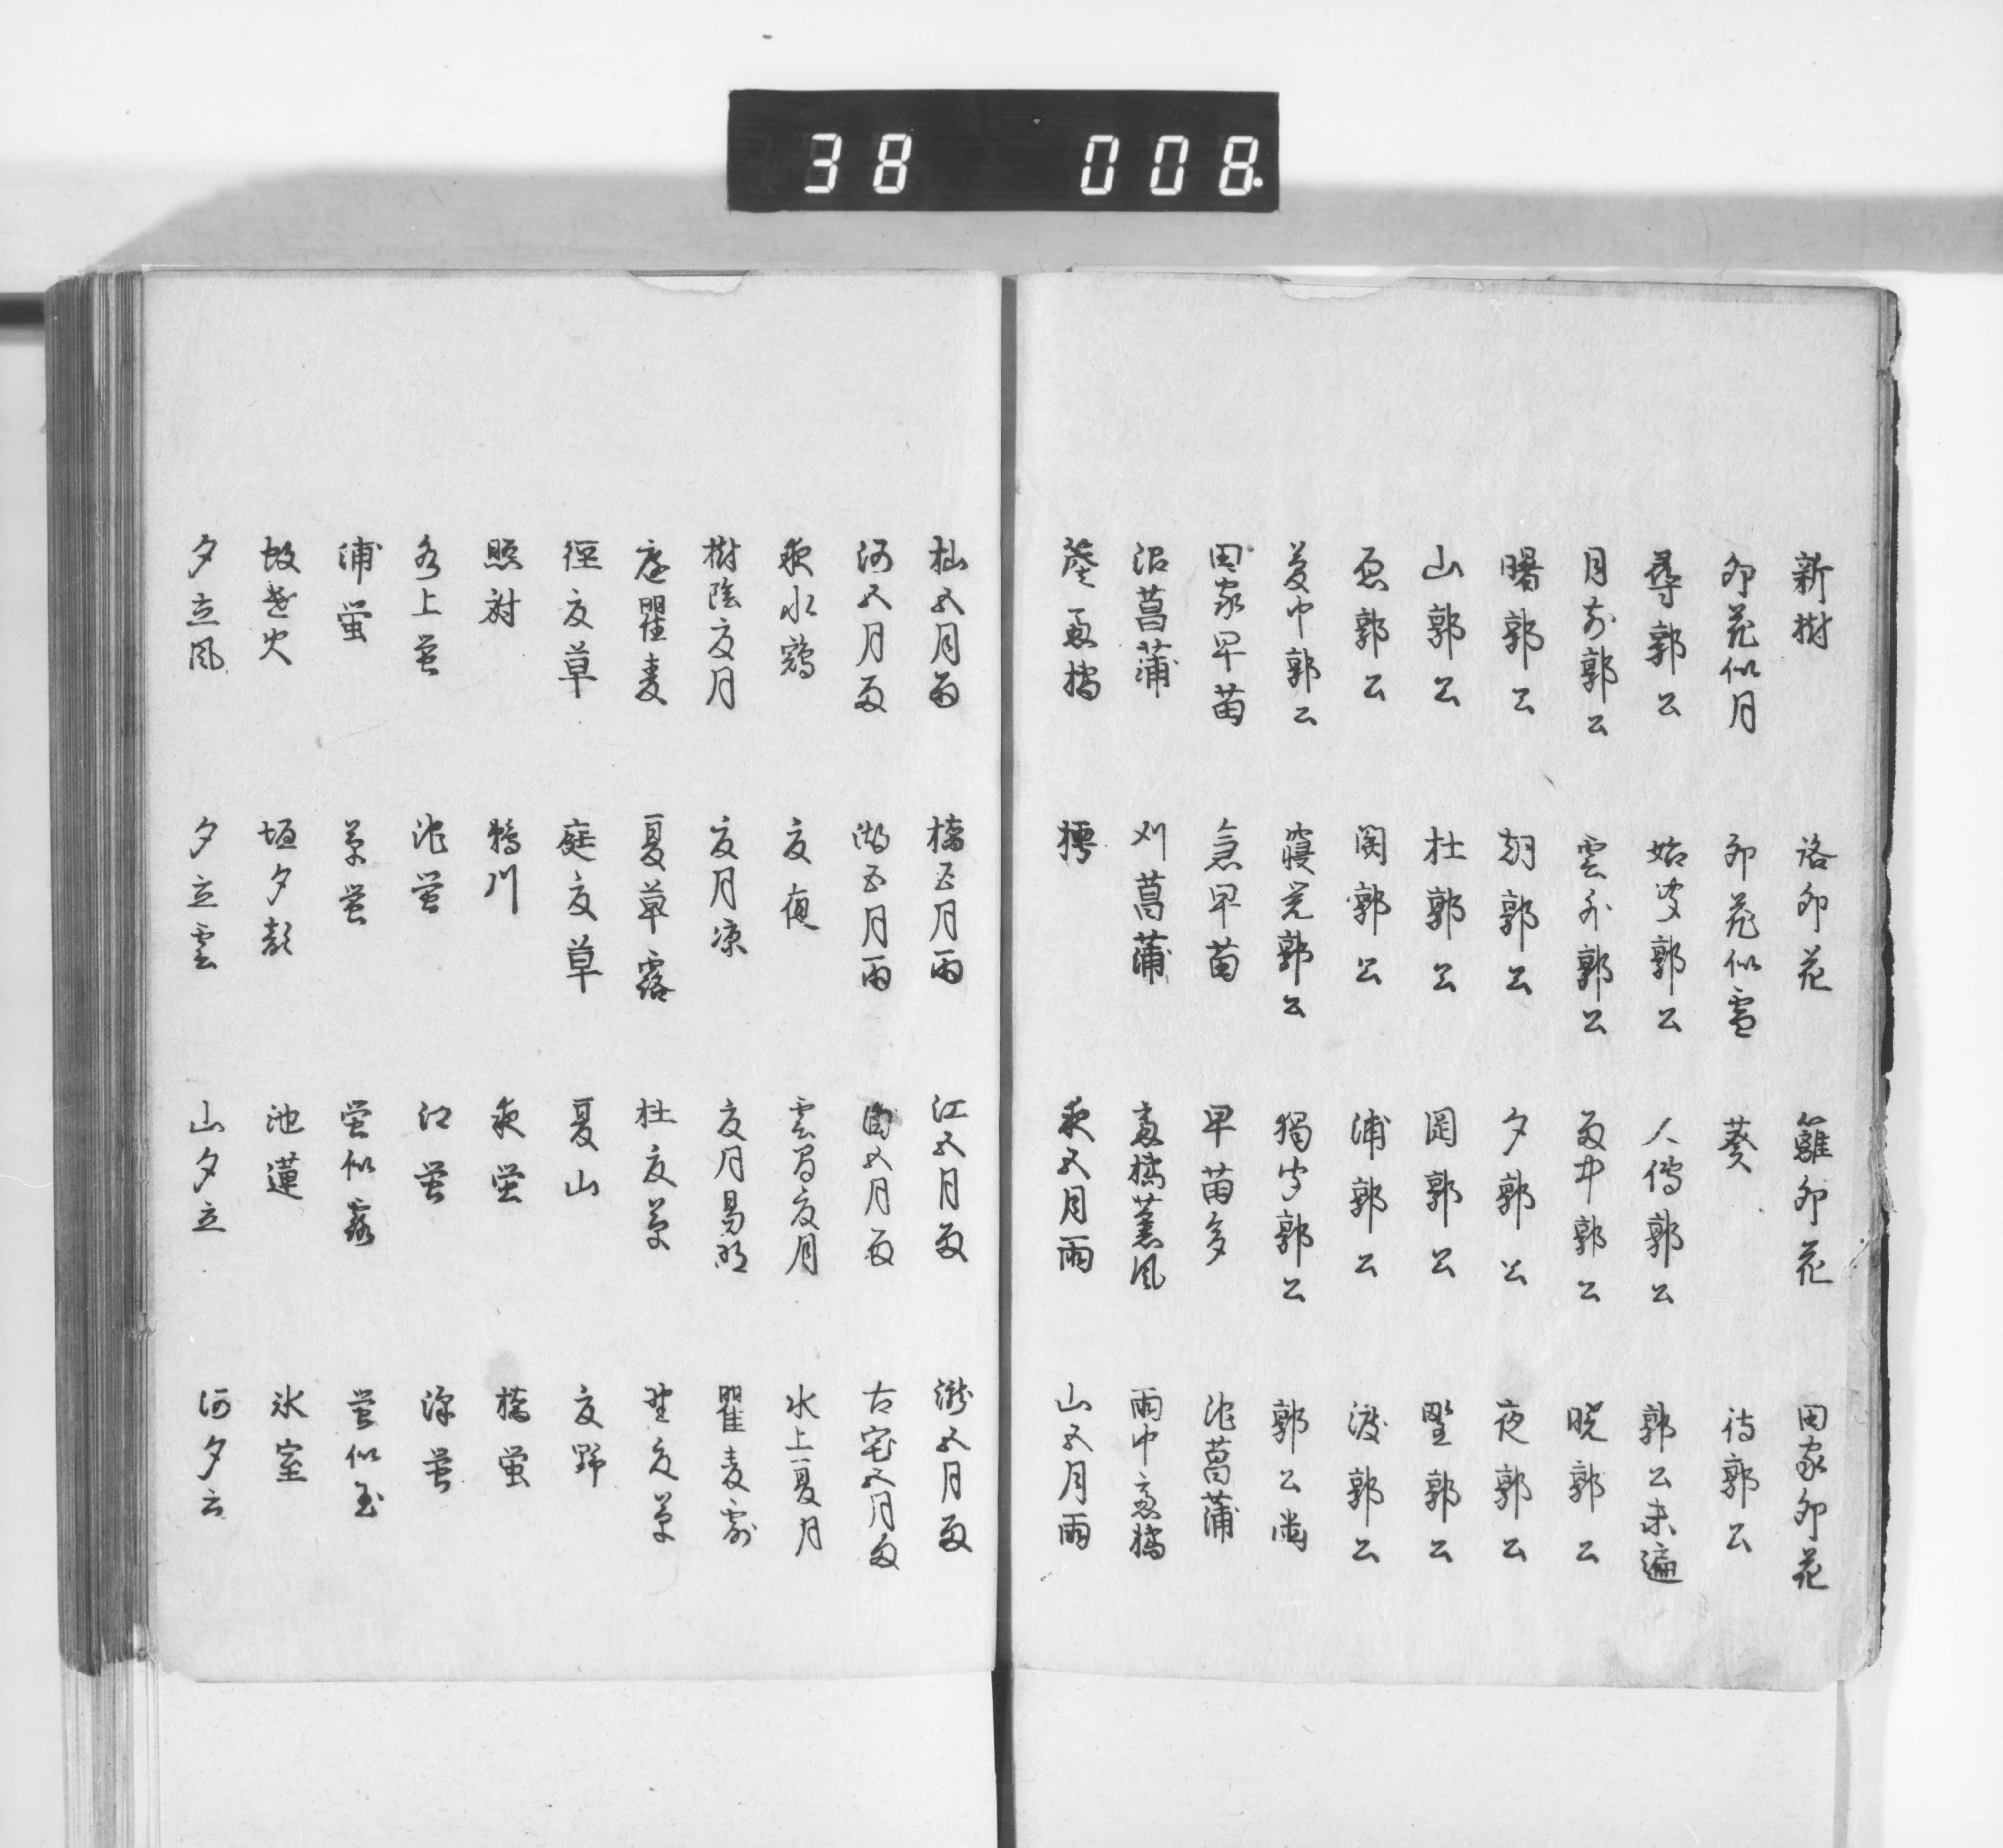 38 008.
新樹 洛卯花 籬卯花 田家卯花
卯花似月 卯花似雪 葵 待郭公
尋郭公 人傳郭公 郭公未遍
月前郭公 雲外郭公 雨中郭公 暁郭公
曙郭公 朝郭公 夕郭公 夜郭公
山郭公 杜郭公 岡郭公 野郭公
郭公 関郭公 浦郭公 渡郭公
郭公 寝覚郭公 獨聞郭公 郭公
田家早苗 急早苗 早苗多 池菖蒲
沼菖蒲 刈菖蒲 盧橘薫風 雨中盧橘
盧橘 樗 夜五月雨 山五月雨
杣五月雨 橋五月雨 江五月雨 瀧五月雨
河五月雨 湖五月雨 五月雨 古宅五月雨
夜水鶏 夏夜 雲間夏月 水上夏月
樹陰夏月 夏月凉 夏月易明 瞿麦露
庭瞿麦 夏草露 杜夏草 野夏草
径夏草 庭夏草 夏山 夏野
照射 鵜川 夜蛍 橋蛍
水上蛍 池蛍 江蛍 蛍
浦蛍 草蛍 蛍似露 蛍似玉
蚊遣火 垣夕顔 池蓮 氷室
夕立風 夕立雲 山夕立 河夕立